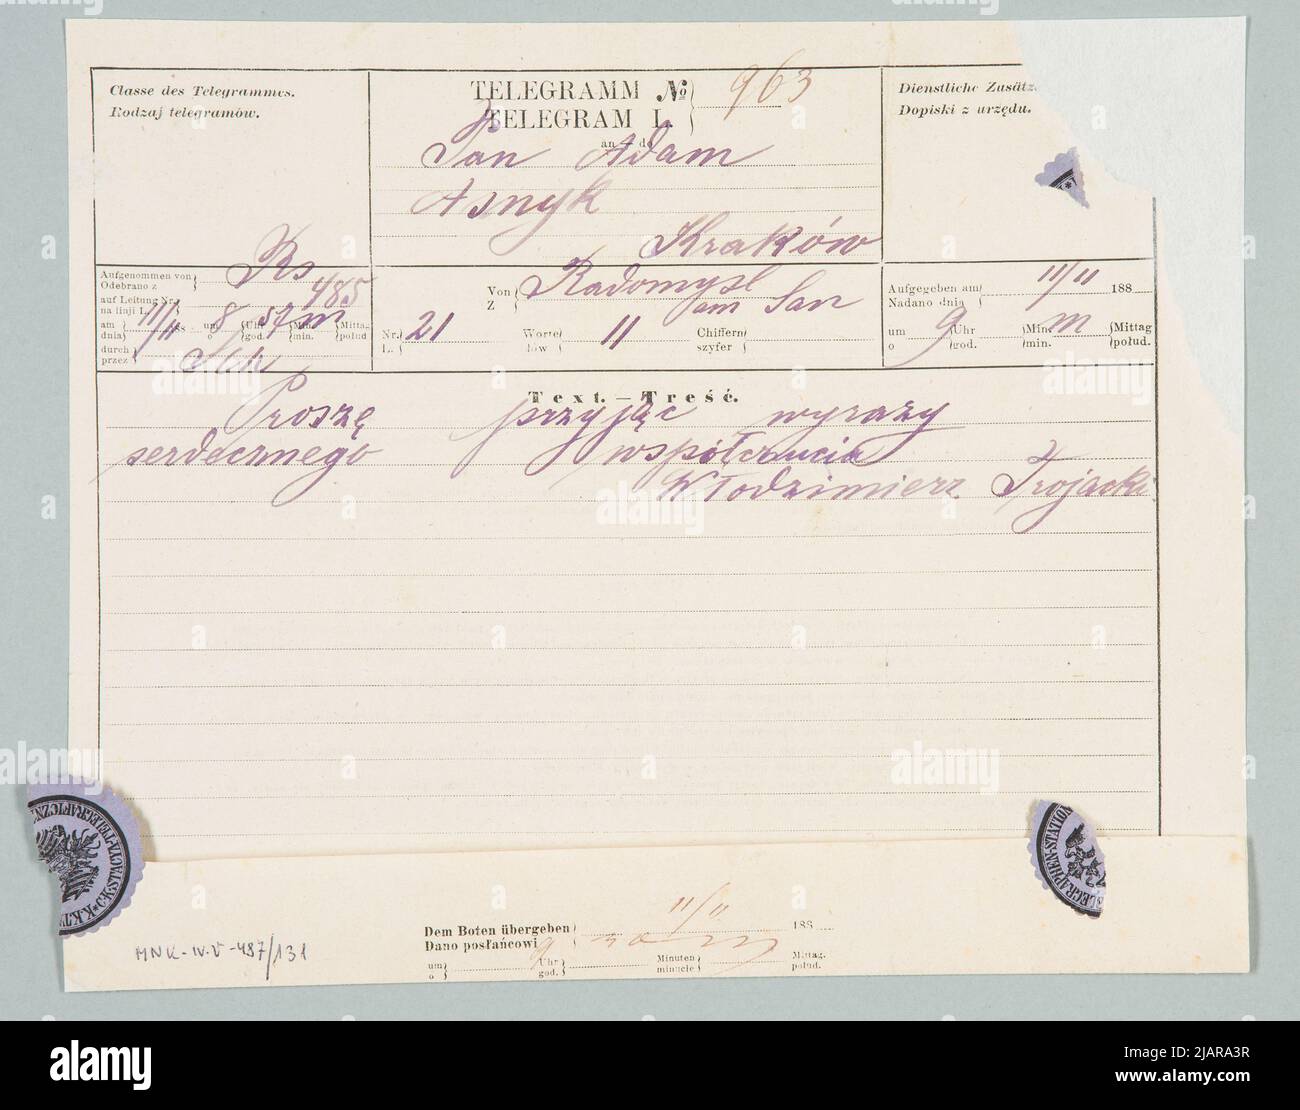 Classe des Telegrammes.
Rodzaj telegramów.
TELEGRAMM №
TELEGRAM L.
963
an — do
Dienstliche Zusätz
Dopiski z urzędu.
Jan Adam
Asnyk
Kraków
Aufgenommen von
Odebrano z
Rs
auf Leitung Nr.
na linji L.
485
am
dnia
11/11
188
um
o
8
Uhr
god.
57
Min.
min.
m
Mittag
połud
durch
przez
Von
Z
Radomysl
am San
Nr.
L.
21
Worte
łów
11
Chiffern
szyfer
Aufgegeben am
Nadano dnia
11/11
188
um
o
9
Uhr
god.
Min.
min.
m
Mittag
połud.
Text. — Treść.
Proszę przyjąc wyrazy
serdecznego współczucia
Włodzimierz Trojacki
C.K.STACYA-TELEGRAFICZN
K.K.T
LEGRAPHEN-STATION
Dem Boten übergeben
Dano posłańcowi
11/11
188
um
o
9
Uhr
god.
Minuten
minucie
Mittag.
połud.
MNK-IV-V-487/131
alamy
Image ID: 2JARA3R
www.alamy.com